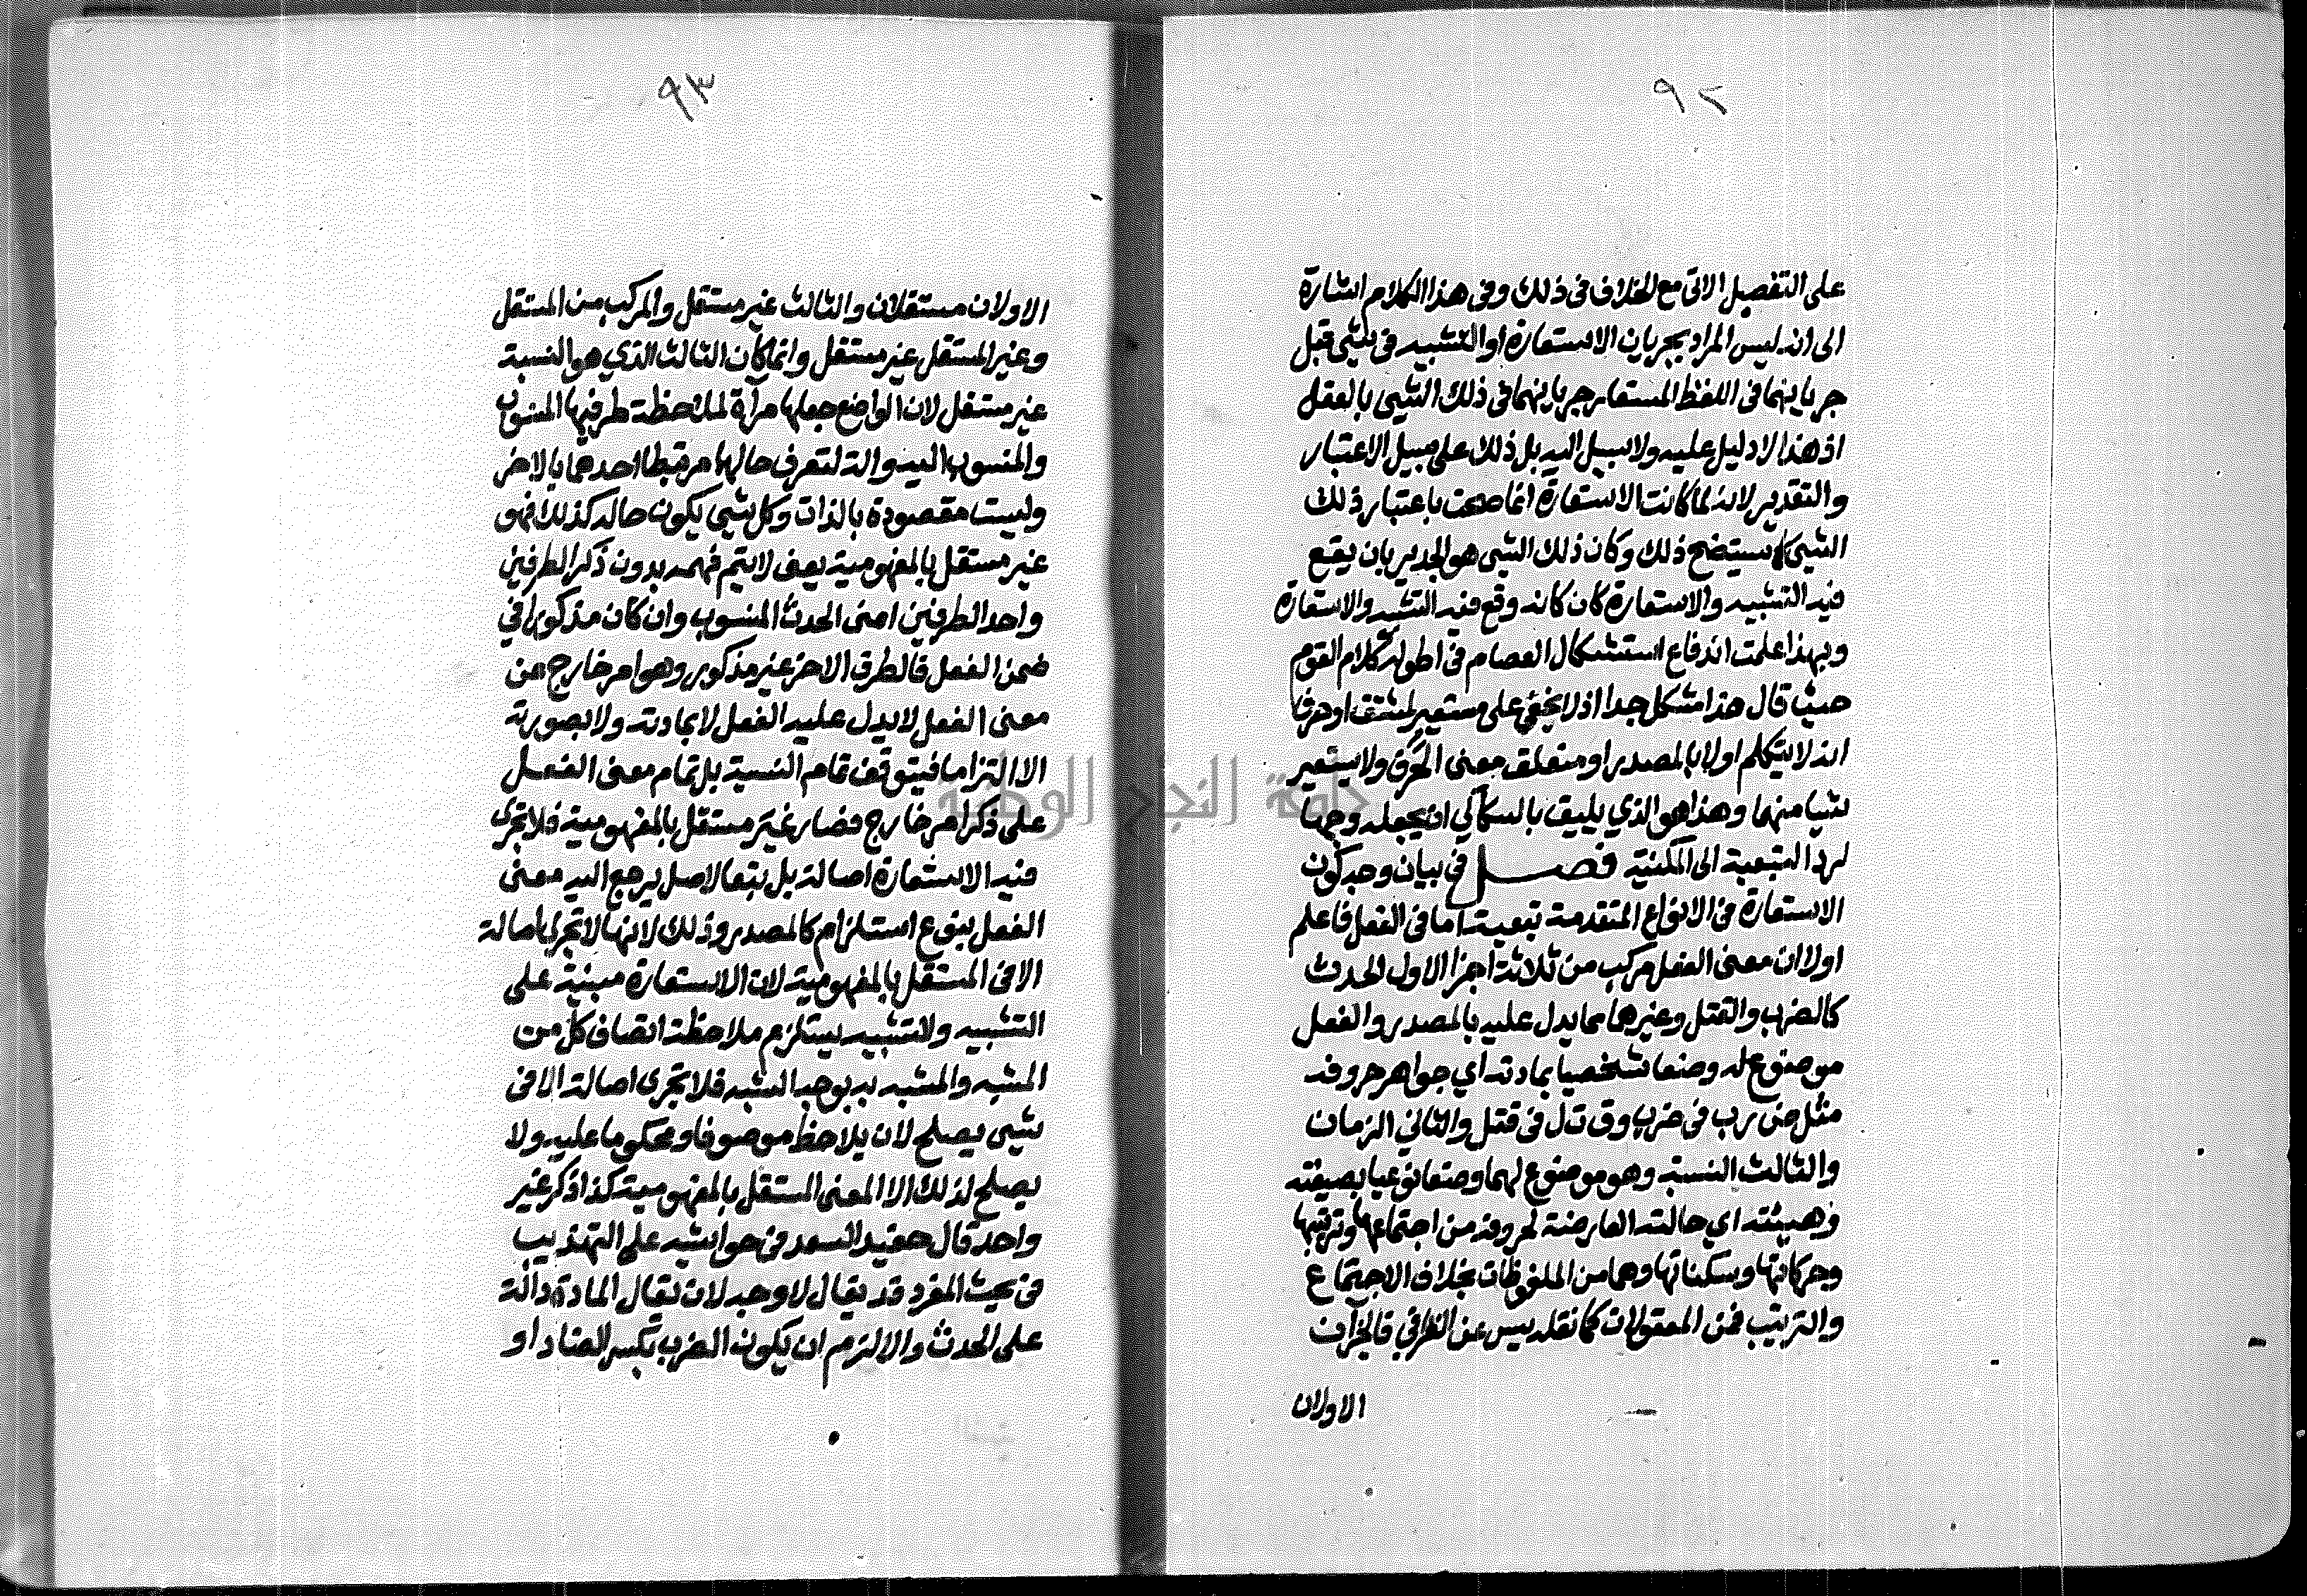 ٩٢
على التفصيل الاتى مع الخلاف فى ذلك وفى هذا الكلام اشارة
الى انه ليس المراد بجريان الاستعارة او التشبيه فى شيى قبل
جريانهما فى اللفظ المستعار جريانهما فى ذلك الشيى بالعقل
اذ هذا لا دليل عليه ولا سبيل اليه بل ذلك على سبيل الاعتبار
والتقدير لانه لما كانت الاستعارة انما صحت باعتبار ذلك
الشيى كما تستيضح ذلك وكان ذلك الشيى هو الجدير بان يقع
فيه التشبيه والاستعارة كان كانه وقع فيه التشبيه والاستعارة
وبهذا علمت اندفاع استشكال العصام فى اطوله كلام القوم
حيث قال هذا مشكل جدا اذ لا يخفى على مستعير لمشتق او حرف
انه لا يتكلم اولا بالمصدر او متعلق معنى الحرف ولا يستعير
شيا منهما وهذا هو الذي يليق بالسكاكي ان يجعله وجها
لرد التبعية الى المكنية فصل في بيان وجه كون
الاستعارة فى الانواع المتقدمة تبعية اما فى الفعل فاعلم
اولا ان معنى الفعل مركب من ثلاثة اجزا الاول الحدث
كالضرب والقتل وغيرهما مما يدل عليه بالمصدر والفعل
موضوع له وضعا شخصيا بمادته اي جواهر حروفه
مثل ض ر ب فى ضرب و ق ت ل فى قتل والثاني الزمان
والثالث النسبة وهو موضوع لهما وضعا نوعيا بصيغته
وهيئته اي حالته العارضة لحروفه من اجتماعها وترتيبها
وحركاتها وسكناتها وهما من الملفوظات بخلاف الاجتماع
والترتيب فمن المعقولات كما نقله يس عن القرافي فالجزآن
الاولان
٩٣
الاولان مستقلان والثالث غير مستقل والمركب من المستقل
وغير المستقل غير مستقل وانما كان الثالث الذي هو النسبة
غير مستقل لان الواضع جعلها مرآة لملاحظة طرفيها المنسوب
والمنسوب اليه والة لتعرف حالهما مرتبطا احدهما بالاخر
وليست مقصودة بالذات وكل شيى يكون حاله كذلك فهو
غير مستقل بالمفهومية يعنى لا يتم فهمه بدون ذكر الطرفين
واحد الطرفين اعنى الحدث المنسوب وان كان مذكورا في
ضمن الفعل فالطرف الاخر غير مذكور وهو امر خارج عن
معنى الفعل لا يدل عليه الفعل لا بمادته ولا بصورته
الا التزاما فيتوقف تمام النسبة بل تمام معنى الفعل
على ذكر امر خارج فصار غير مستقل بالمفهومية فلا تجرى
فيه الاستعارة اصالة بل تبعا لاصل يرجع اليه معنى
الفعل بنوع استلزام كالمصدر وذلك لانها لا تجرى اصالة
الا فى المستقل بالمفهومية لان الاستعارة مبنية على
التشبيه والتشبيه يستلزم ملاحظة اتصاف كل من
المشبه والمشبه به بوجه الشبه فلا تجرى اصالة الا فى
شيى يصلح لان يلاحظ موصوفا ومحكوما عليه ولا
يصلح لذلك الا المعنى المستقل بالمفهومية كذا ذكر غير
واحد قال حفيد السعد فى حواشيه على التهذيب
فى بحث المفرد قد يقال لا وجه لان يقال المادة دالة
على الحدث والا لزم ان يكون الضرب بكسر الضاد او
جامعة النجاح الوطنية